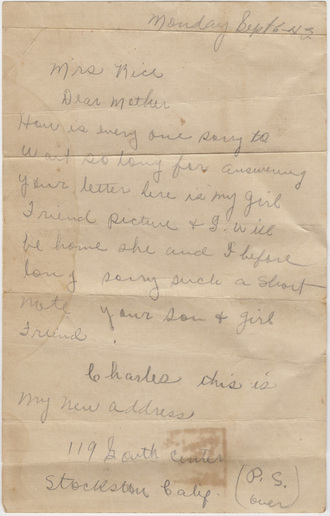 Monday Sept 6-43
Mrs Rice
Dear Mother
How is every one sorry to
Wait so long for answering
Your letter here is my girl
Friend picture & I. Will
be home she and I before
long sorry such a short
note your son & girl
Friend
Charles this is
my new address
119 South Center
Stockston Calif.
(P.S.
over)